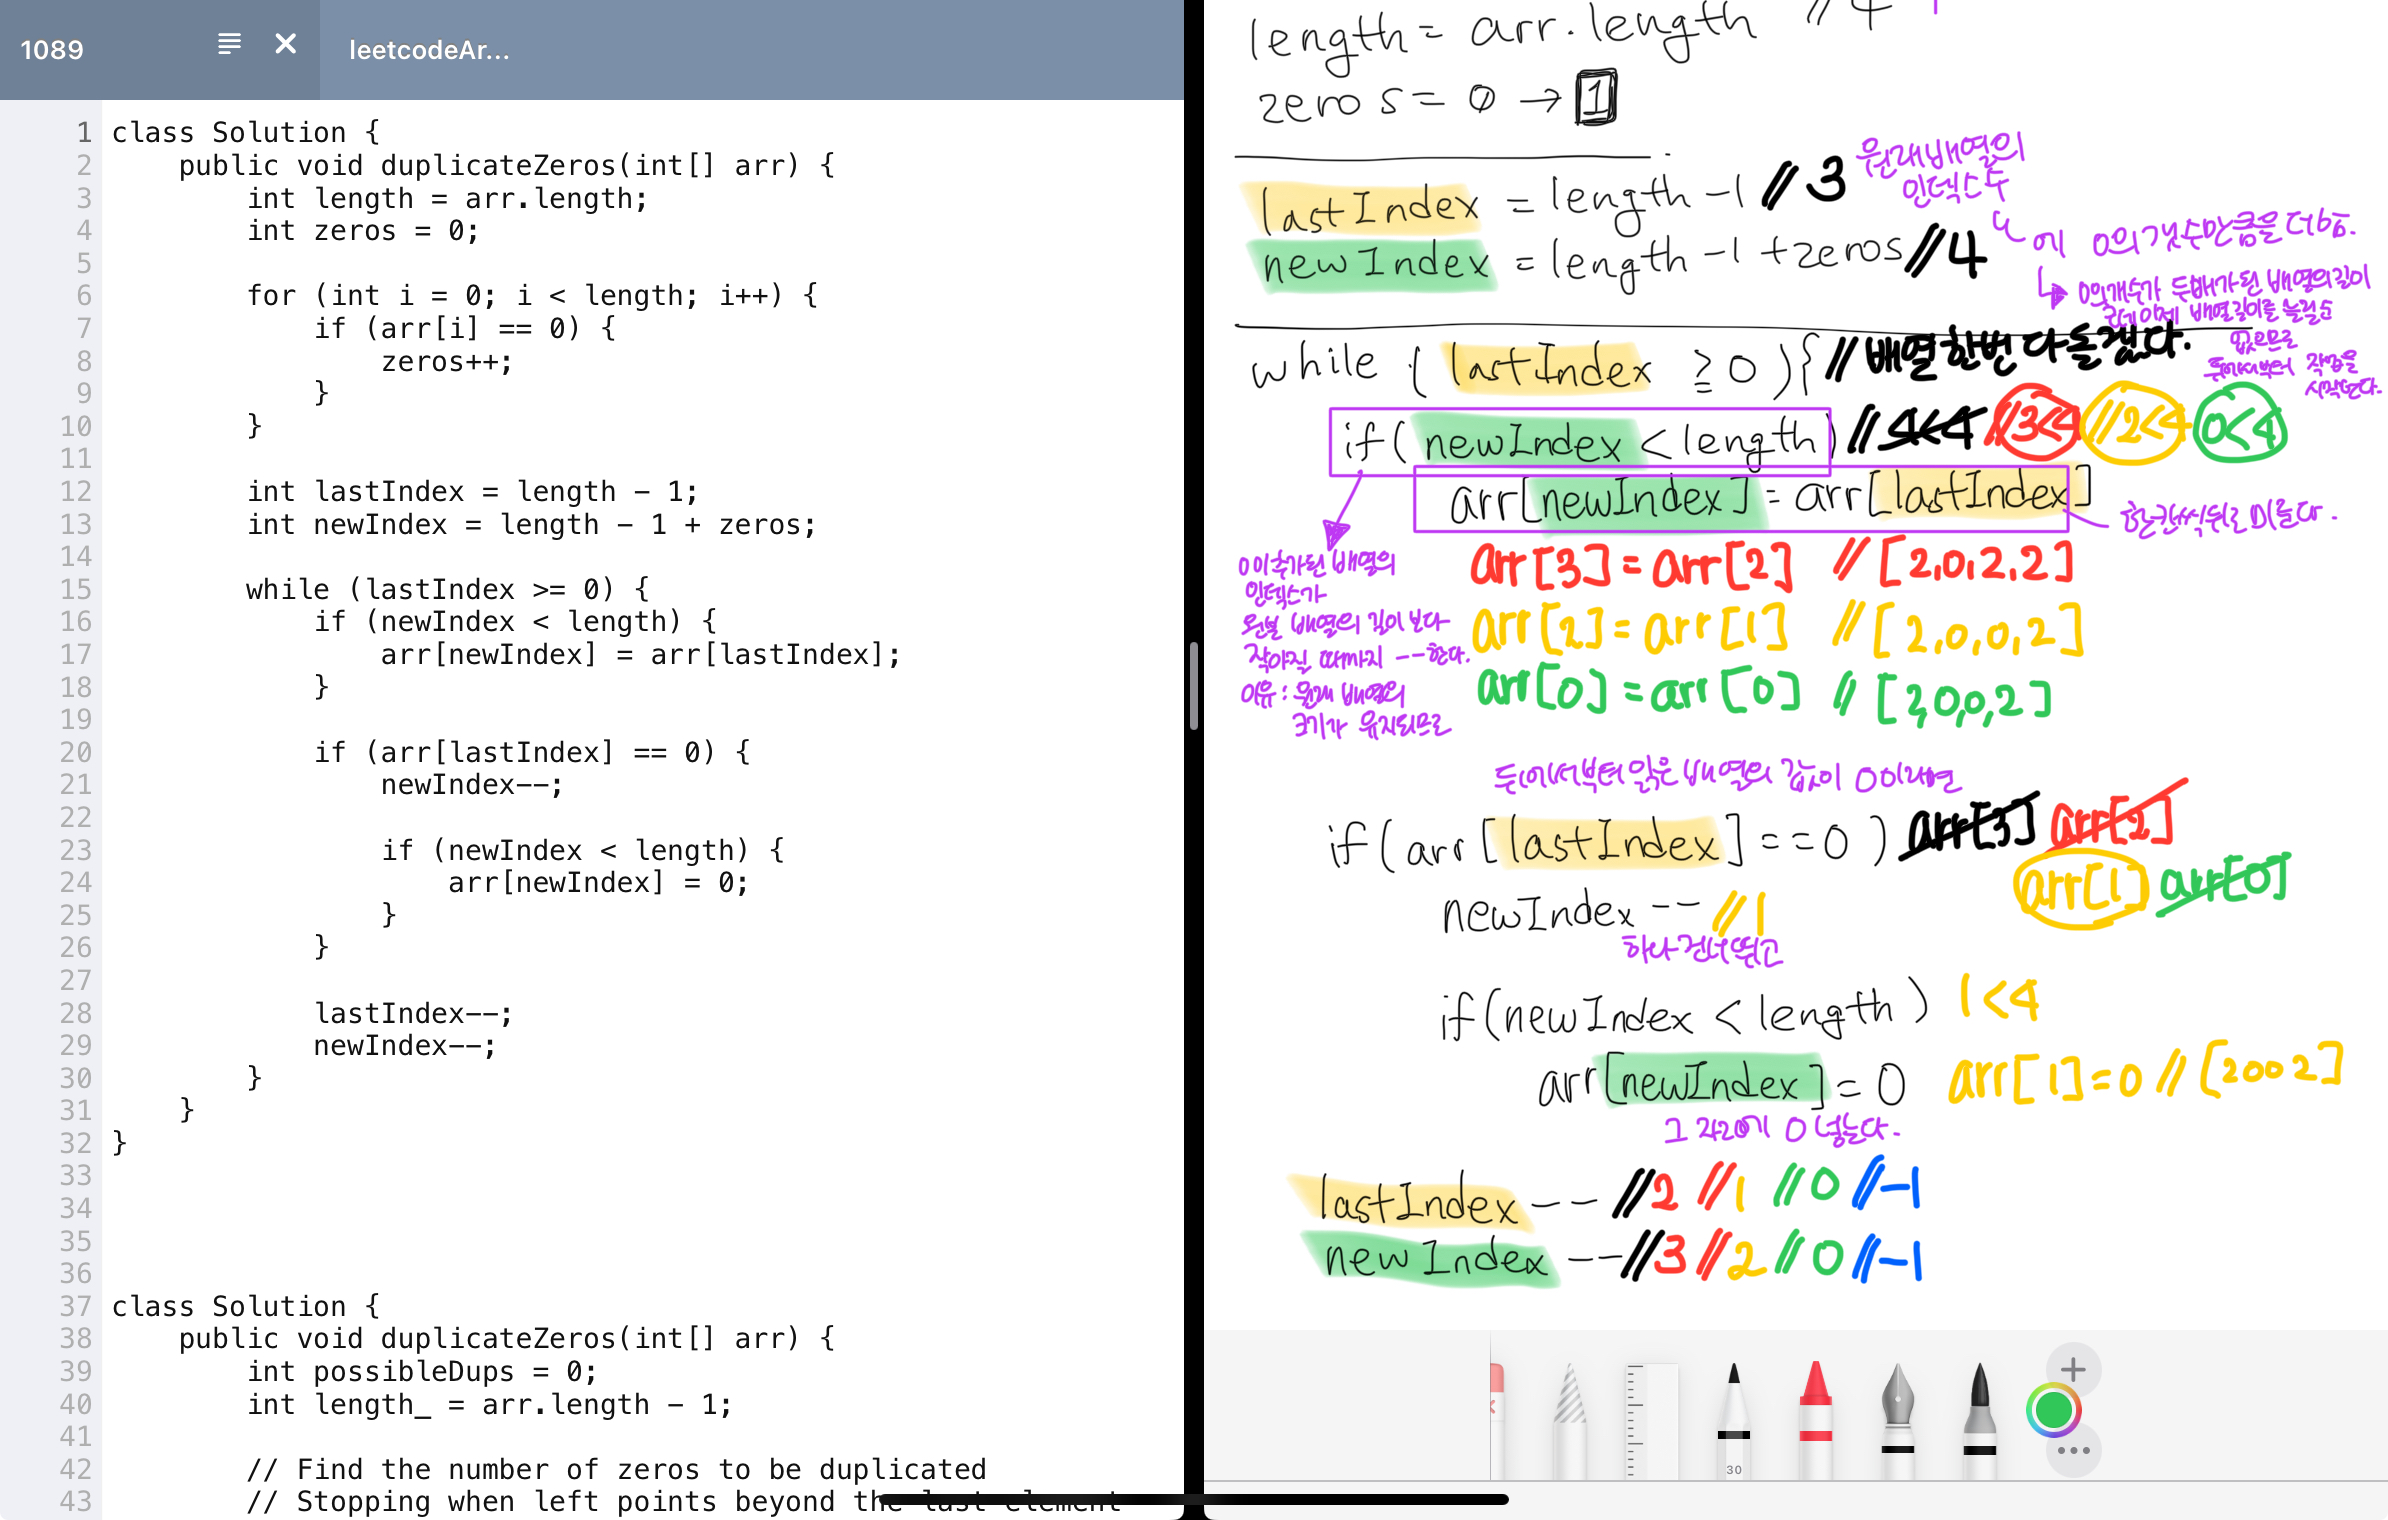 1089
leetcodeAr...
1 class Solution {
2     public void duplicateZeros(int[] arr) {
3         int length = arr.length;
4         int zeros = 0;
5
6         for (int i = 0; i < length; i++) {
7             if (arr[i] == 0) {
8                 zeros++;
9             }
10         }
11
12         int lastIndex = length - 1;
13         int newIndex = length - 1 + zeros;
14
15         while (lastIndex >= 0) {
16             if (newIndex < length) {
17                 arr[newIndex] = arr[lastIndex];
18             }
19
20             if (arr[lastIndex] == 0) {
21                 newIndex--;
22
23                 if (newIndex < length) {
24                     arr[newIndex] = 0;
25                 }
26             }
27
28             lastIndex--;
29             newIndex--;
30         }
31     }
32 }
33
34
35
36
37 class Solution {
38     public void duplicateZeros(int[] arr) {
39         int possibleDups = 0;
40         int length_ = arr.length - 1;
41
42         // Find the number of zeros to be duplicated
43         // Stopping when left points beyond the last element
length = arr.length //4
zeros = 0 → 1
lastIndex = length -1 //3 원래배열의
인덱스수
newIndex = length -1 +zeros //4 에 0의 갯수만큼을 더함.
↳ 0의개수가 두배가된 배열의길이
근데 이제 배열길이를 늘릴수
없으므로
뒤에서부터 작업을
시작한다.
while ( lastIndex ≥ 0 ){ //배열 한번 다 돌겠다.
if( newIndex < length) //4<4 //3<4 //2<4 0<4
arr[newIndex] = arr[lastIndex]
한칸씩뒤로 미룬다.
0이추가된 배열의
인덱스가
원본 배열의 길이 보다
작아질 때까지 --한다.
이유: 원래 배열의
크기가 유지되므로
arr[3] = arr[2] //[2,0,2,2]
arr[2] = arr[1] //[2,0,0,2]
arr[0] = arr[0] //[2,0,0,2]
뒤에서부터 읽은 배열의 값이 0이라면
if(arr[lastIndex]==0) arr[3] arr[2]
arr[1] arr[0]
newIndex-- //1
하나 건너뛰고
if(newIndex < length) 1<4
arr[newIndex]=0 arr[1]=0 //[2002]
그 자리에 0 넣는다.
lastIndex-- //2 //1 //0 //-1
newIndex-- //3 //2 //0 //-1
30